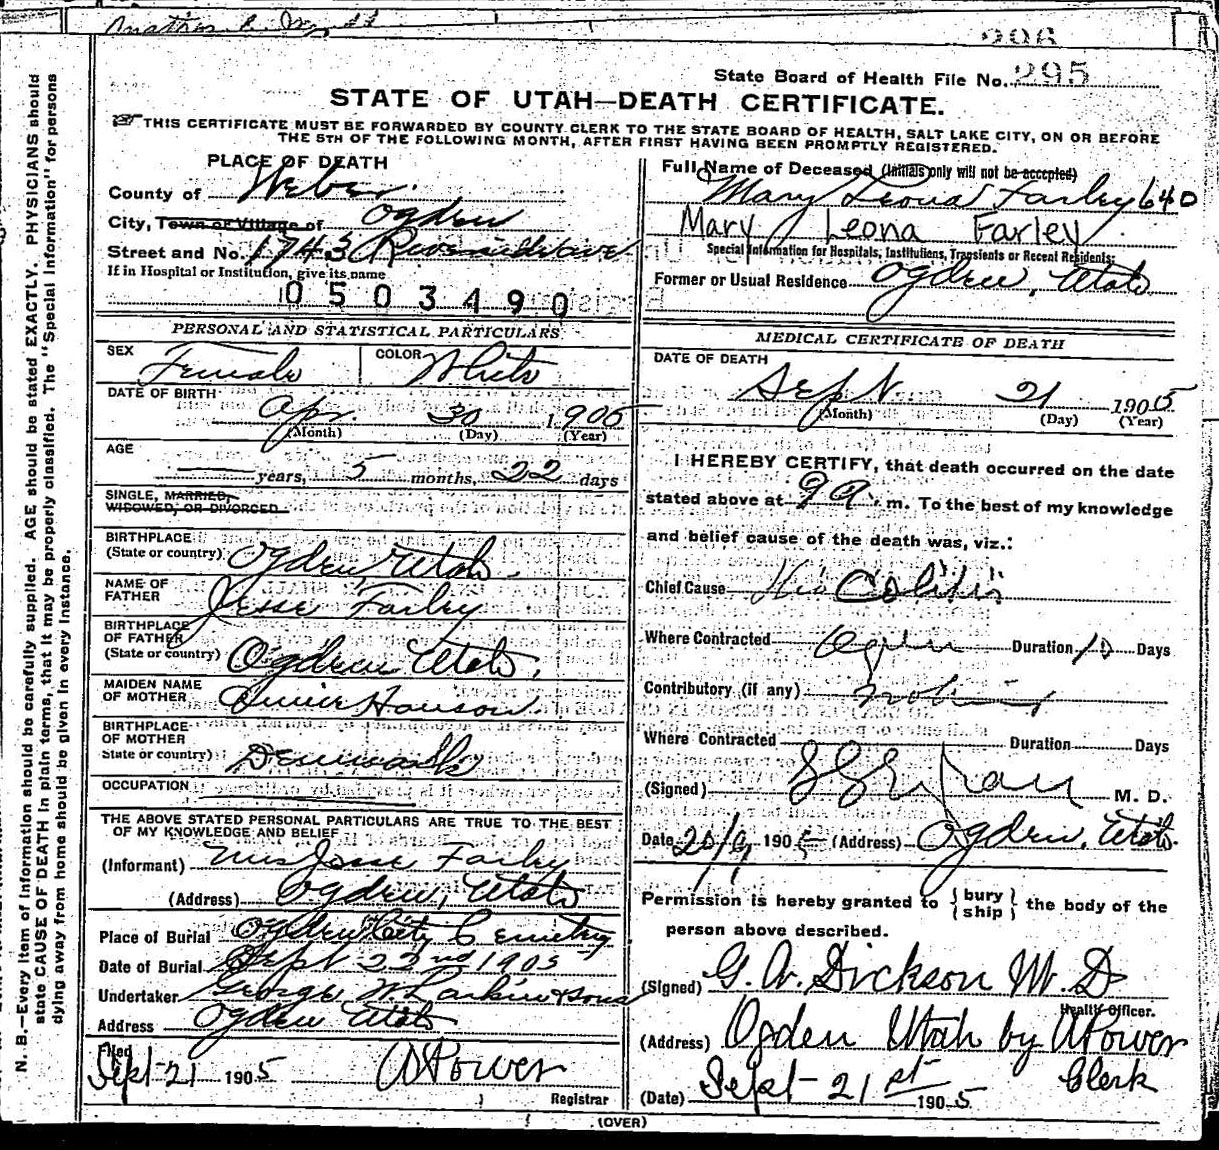 296
State Board of Health File No. 295
STATE OF UTAH—DEATH CERTIFICATE.
☞THIS CERTIFICATE MUST BE FORWARDED BY COUNTY CLERK TO THE STATE BOARD OF HEALTH, SALT LAKE CITY, ON OR BEFORE
THE 5TH OF THE FOLLOWING MONTH, AFTER FIRST HAVING BEEN PROMPTLY REGISTERED.
PLACE OF DEATH
County of Weber.
City, Town or Village of Ogden
Street and No. 1743 Riverside Ave
If in Hospital or Institution, give its name
0503490
PERSONAL AND STATISTICAL PARTICULARS
SEX Female COLOR White
DATE OF BIRTH
Apr 30 1905
(Month) (Day) (Year)
AGE
years, 5 months, 22 days
SINGLE, MARRIED,
WIDOWED, OR DIVORCED
BIRTHPLACE
(State or country) Ogden, Utah.
NAME OF
FATHER Jesse Farley
BIRTHPLACE
OF FATHER
(State or country) Ogden Utah.
MAIDEN NAME
OF MOTHER Hanson.
BIRTHPLACE
OF MOTHER
State or country) Denmark
OCCUPATION
THE ABOVE STATED PERSONAL PARTICULARS ARE TRUE TO THE BEST
OF MY KNOWLEDGE AND BELIEF
(Informant) Mrs Jesse Farley
(Address) Ogden, Utah
Place of Burial Ogden City Cemetery
Date of Burial Sept 22nd 1905
Undertaker George W Larkin & Sons
Address Ogden Utah
Filed
Sept 21 1905 A Power
Registrar
Full Name of Deceased (Initials only will not be accepted)
Mary Leona Farley 640
Mary Leona Farley.
Special Information for Hospitals, Institutions, Transients or Recent Residents:
Former or Usual Residence Ogden, Utah
MEDICAL CERTIFICATE OF DEATH
DATE OF DEATH
Sept 21 1905
(Month) (Day) (Year)
I HEREBY CERTIFY, that death occurred on the date
stated above at 9 a. m. To the best of my knowledge
and belief cause of the death was, viz.:
Chief Cause Colitis
Where Contracted Ogden Duration 10 Days
Contributory (if any) nothing
Where Contracted Duration Days
(Signed) M. D.
Date 20/9 1905 (Address) Ogden, Utah.
Permission is hereby granted to { bury ship } the body of the
person above described.
(Signed) G. W. Dickson M. D
Health Officer.
(Address) Ogden Utah by A Power
Clerk
(Date) Sept 21st 1905
(OVER)
N. B.—Every item of information should be carefully supplied. AGE should be stated EXACTLY. PHYSICIANS should
state CAUSE OF DEATH in plain terms, that it may be properly classified. The "Special Information" for persons
dying away from home should be given in every instance.